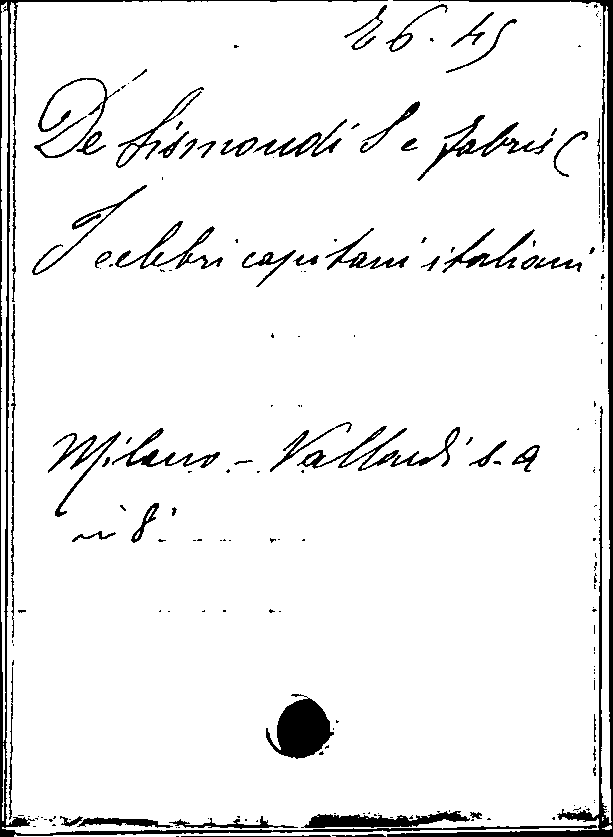 E 6. 45
De Sismondi S e Fabris C
I celebri capitani italiani
Milano - Vallardi s. a
in 8°